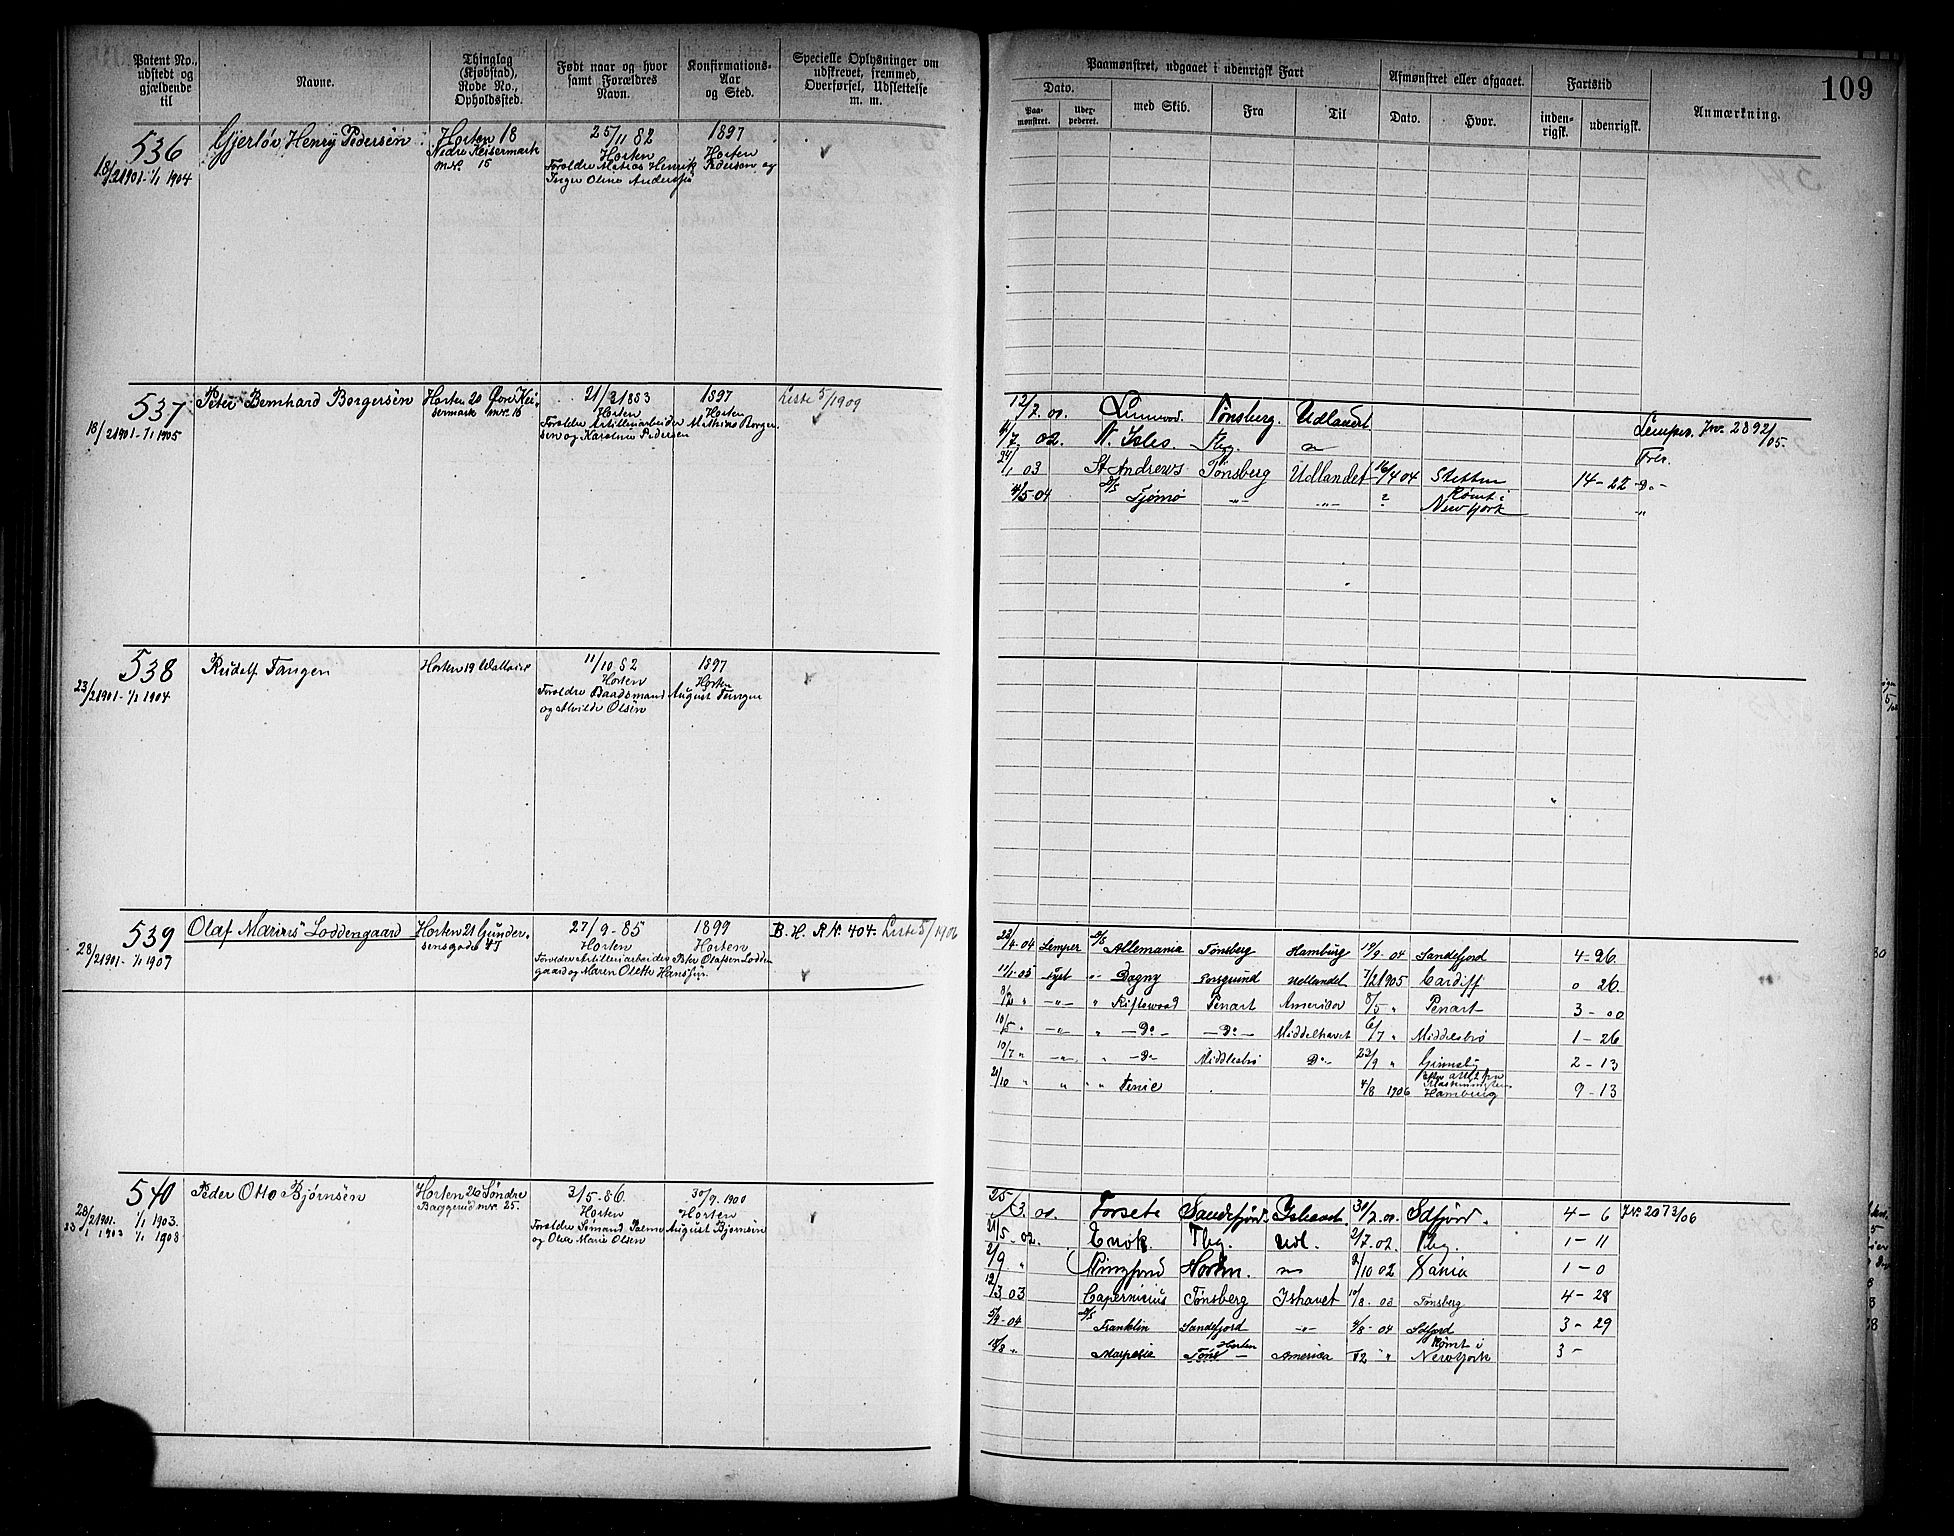 Patent No., udstedt og gjældende til
Navne.
Thinglag (Kjøbstad), Rode No., Opholdssted.
Født naar og hvor samt Forældres Navn.
Konfirmations-Aar og Sted.
Specielle Oplysninger om udskrevet, fremmed, Overførsel, Udslettelse m. m.
Paamønstret, udgaaet i udenrigsk Fart
Afmønstret eller afgaaet.
Fartstid
Anmærkning.
109
Dato.
Paa-mønstret.
med Skib.
Fra
Til
Dato.
Hvor.
inden-rigsk.
udenrigsk.
536
18/2 1901 - 1/1 1904
Gjerløv Henry Pedersen
Horten 18
Nedre Keisermark
nr. 15
25/11 82
Horten
Forældre Matias Henrik Pedersen og
Inger Oline Andersen
1897
Horten
537
18/2 1901 - 1/1 1905
Peter Bernhard Borgersen
Horten 20 Øvre Kei-
sermark nr. 16
21/3 1883
Horten
Forældre Artilleriarbeider Mathias Borger
sen og Karoline Pedersen
1897
Horten
Liste 5/1909
12/7. 01. Tønsberg. Udlandet
Lemper. Jnr. 2892/05.
7/ 02. N. Isles. Tbg.
24/1 03 St Andrews Tønsberg Udlandet 16/4 04 Stettin 14 - 22 - Do -
4/5 - 04 D/S Tjømø - " - - " - ? Rømt i
New York "
538
23/2 1901 - 1/1 1904
Rudolf Tangen
Horten 19
11/10. 82
Horten
Forældre Baadsmand August Tangen
og Alvilde Olsen
1897
Horten
539
28/2 1901 - 1/1 1907
Olaf Marius Loddengaard
Horten 21 Gunder-
sensgade 47
27/9 - 85
Horten
Forældre Artilleriarbeider Peter Olafsen Lodden
gaard og Maren Olette Hanssen
1899
Horten
B. H. R Nr. 404. Liste 5/1906
22/4 - 04 Lemper D/S Allemania Tønsberg Hamburg 19/9 - 04 Sandefjord 4 - 26
11/1 - 05 - " - Dagny Porsgrund Udlandet 7/2 1905 Cardiff 0 26.
8/2 " - " - " Penart Amerika 8/5 " Penart 3 - 00
10/5 " - " - " - Do - - Do - Middelhavet 6/7 " Middelsbro 1 - 26
10/7 " - " - " - Do Middlesbro Do - 22/9 " Grimsby 2 - 13
21/10 " " " " 4/8 1906
Hamburg 9 - 13
540
28/2 1901.
1/1 1903.
1/1 1908
Peder Otto Bjørnsen
Horten 26 Søndre
Baggerud nr. 25.
3/5 - 86.
Horten
Forældre Sømand August Bjørnsen
og Olea Marie Olsen
30/9. 1900
Horten
25/3. 01. Forsete Sandefjord. Ishavet 30/7. 01. Sdfjord. 4 - 6 JNr. 2073/06
21/5 - 02. Enok. Tbg. Udl. 2/7. 02. Tbg. 1 - 11
2/9 " Ringfond Horten. 2/10 02 1 - 0
12/3 03 Capernicius Tønsberg Ishavet 10/8 - 03 Tønsberg 4 - 28
5/4 - 04 D/S Franklin Sandefjord - " - 4/8 - 04 Sdfjord 3 - 29
18/8 " Marpesia Horten Amerika 12 " Rømt i
New York 3 -